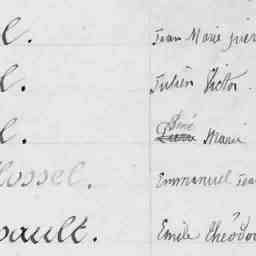 l. Jean Marie pier
l. Julien Victor.
l. Réné Marie
lossel. Emmanuel Jea
bault. Emile Théodo